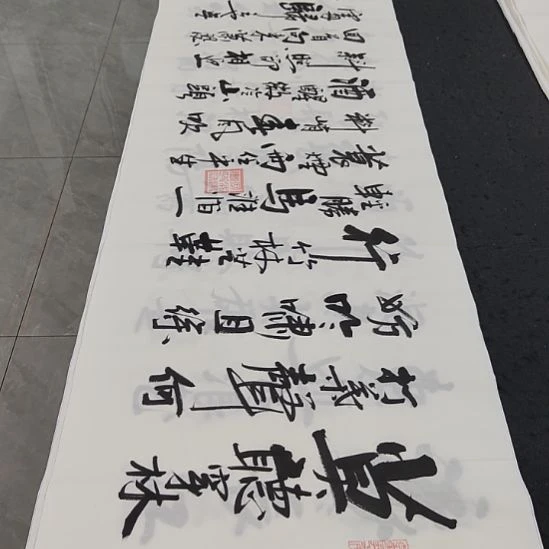 莫聽穿林
打葉聲何
妨吟嘯且徐
行竹杖芒鞋
輕勝馬誰怕一
蓑煙雨任平生
料峭春風吹
酒醒微冷山頭
斜照却相迎
回首向來蕭瑟
處歸